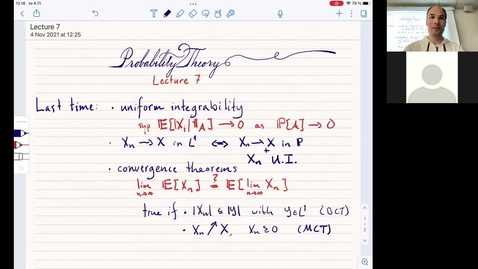 13.18 to 4.11
79 %
Lecture 7
4 Nov 2021 at 12:25
Probability Theory
Lecture 7
Last time: • uniform integrability
sup E[|Xᵢ| 1_A] → 0 as P[A] → 0
• Xₙ → X in L¹ ⟺ Xₙ → X in P
+
Xₙ U.I.
• convergence theorems
lim n→∞ E[Xₙ] ?= E[lim n→∞ Xₙ]
true if • |Xₙ| ≤ |Y| with Y∈L¹ (DCT)
• Xₙ ↗ X, Xₙ ≥ 0 (MCT)